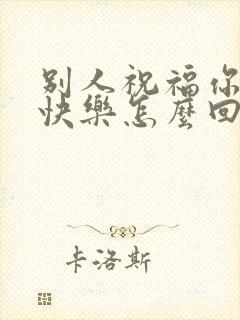 别人祝福你
快樂怎麼回
卡洛斯